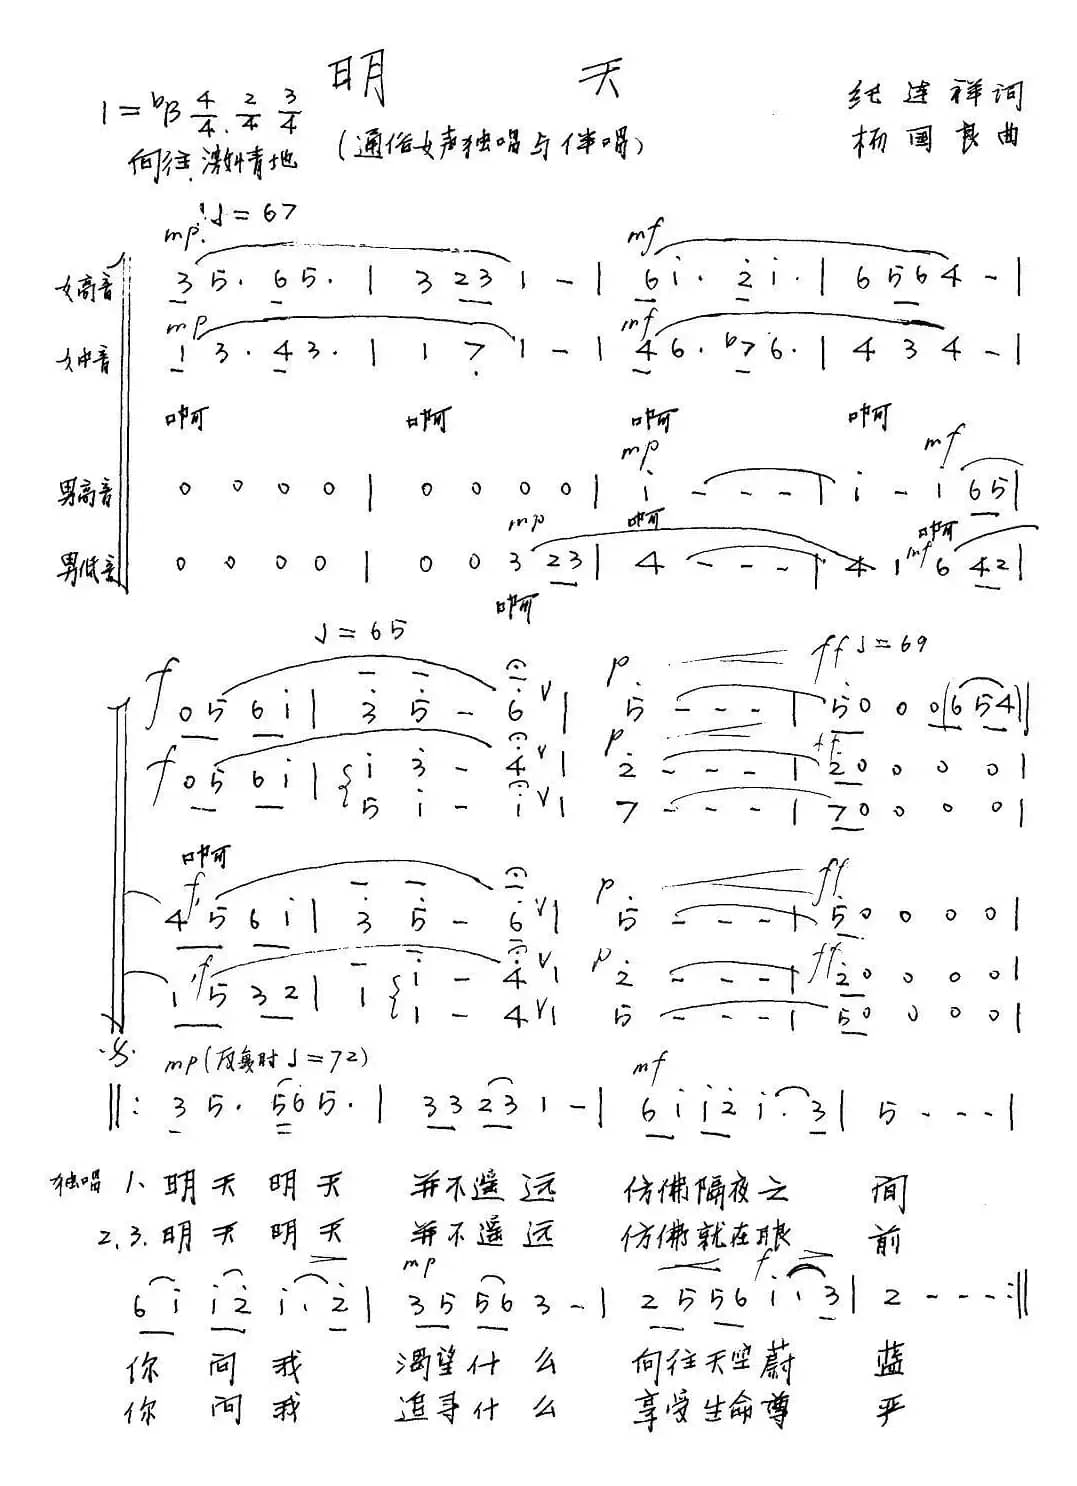 明 天
1=♭B 4/4 2/4 3/4
向往.激情地
(通俗女声独唱与伴唱)
纯连祥词
杨国良曲
♩=67
mp mf
女高音 3 5. 6 5. | 3 2 3 1 - | 6 i. 2̇ i. | 6 5 6 4 - |
mp mf
女中音 1 3. 4 3. | 1 7̣ 1 - | 4 6. ♭7 6. | 4 3 4 - |
啊 啊 啊 啊
mp mf
男高音 0 0 0 0 | 0 0 0 0 | i - - - | i - i 6 5 |
mp 啊 啊 mf
男低音 0 0 0 0 | 0 0 3 2 3 | 4 - - - | 4 1 6 4 2 |
啊
♩=65
f p ff ♩=69
0 5 6 i | 3̇ 5̇ - 6̇ V | 5̇ - - - | 5̇ 0 0 0 0 (6 5 4) |
f p ff
0 5 6 i | i 3̇ - 4̇ V | 2̇ - - - | 2̇ 0 0 0 0 |
5 i - i V | 7 - - - | 7 0 0 0 0 |
啊
f p ff
4 5 6 i | 3̇ 5̇ - 6̇ V | 5̇ - - - | 5̇ 0 0 0 0 |
f p ff
1 5 3 2 | 1 i - 4̇ V | 2̇ - - - | 2̇ 0 0 0 0 |
1 - 4 V | 5 - - - | 5 0 0 0 0 |
mp (反复时♩=72) mf
‖: 3 5. 5 6 5. | 3 3 2 3 1 - | 6 i i 2̇ i. 3 | 5 - - - |
独唱 1、明天 明天 并不遥远 仿佛隔夜之 间
2.3.明天 明天 并不遥远 仿佛就在眼 前
mp f
6 i i 2̇ i. 2̇ | 3 5 5 6 3 - | 2 5 5 6 i. 3 | 2 - - - :‖
你 问 我 渴望什么 向往天空蔚 蓝
你 问 我 追寻什么 享受生命尊 严